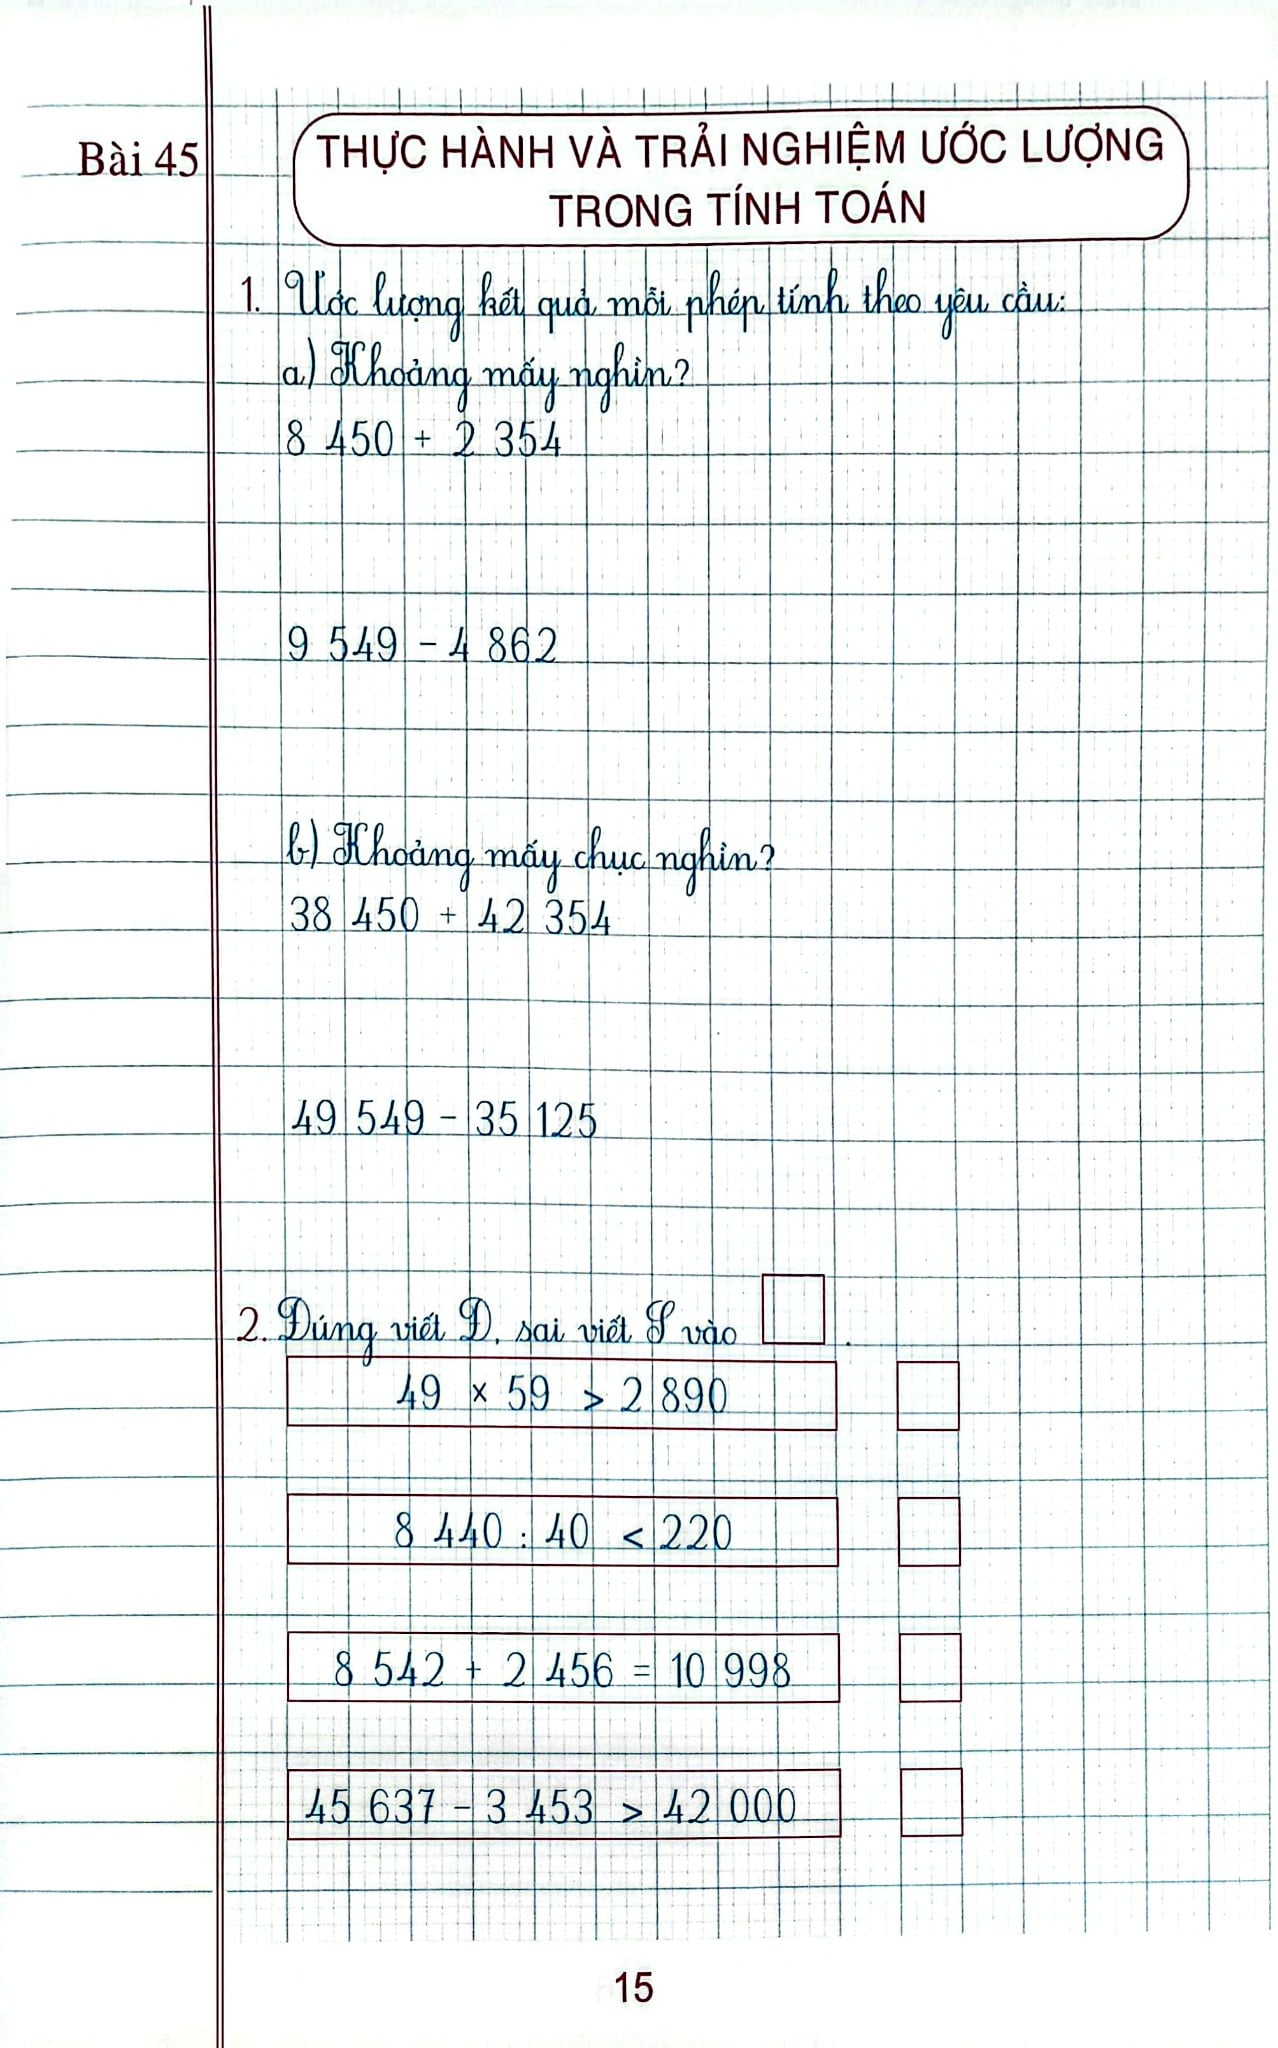 Bài 45
THỰC HÀNH VÀ TRẢI NGHIỆM ƯỚC LƯỢNG
TRONG TÍNH TOÁN
1. Ước lượng kết quả mỗi phép tính theo yêu cầu:
a) Khoảng mấy nghìn?
8 450 + 2 354
9 549 - 4 862
b) Khoảng mấy chục nghìn?
38 450 + 42 354
49 549 - 35 125
2. Đúng viết Đ, sai viết S vào .
49 × 59 > 2 890
8 440 : 40 < 220
8 542 + 2 456 = 10 998
45 637 - 3 453 > 42 000
15